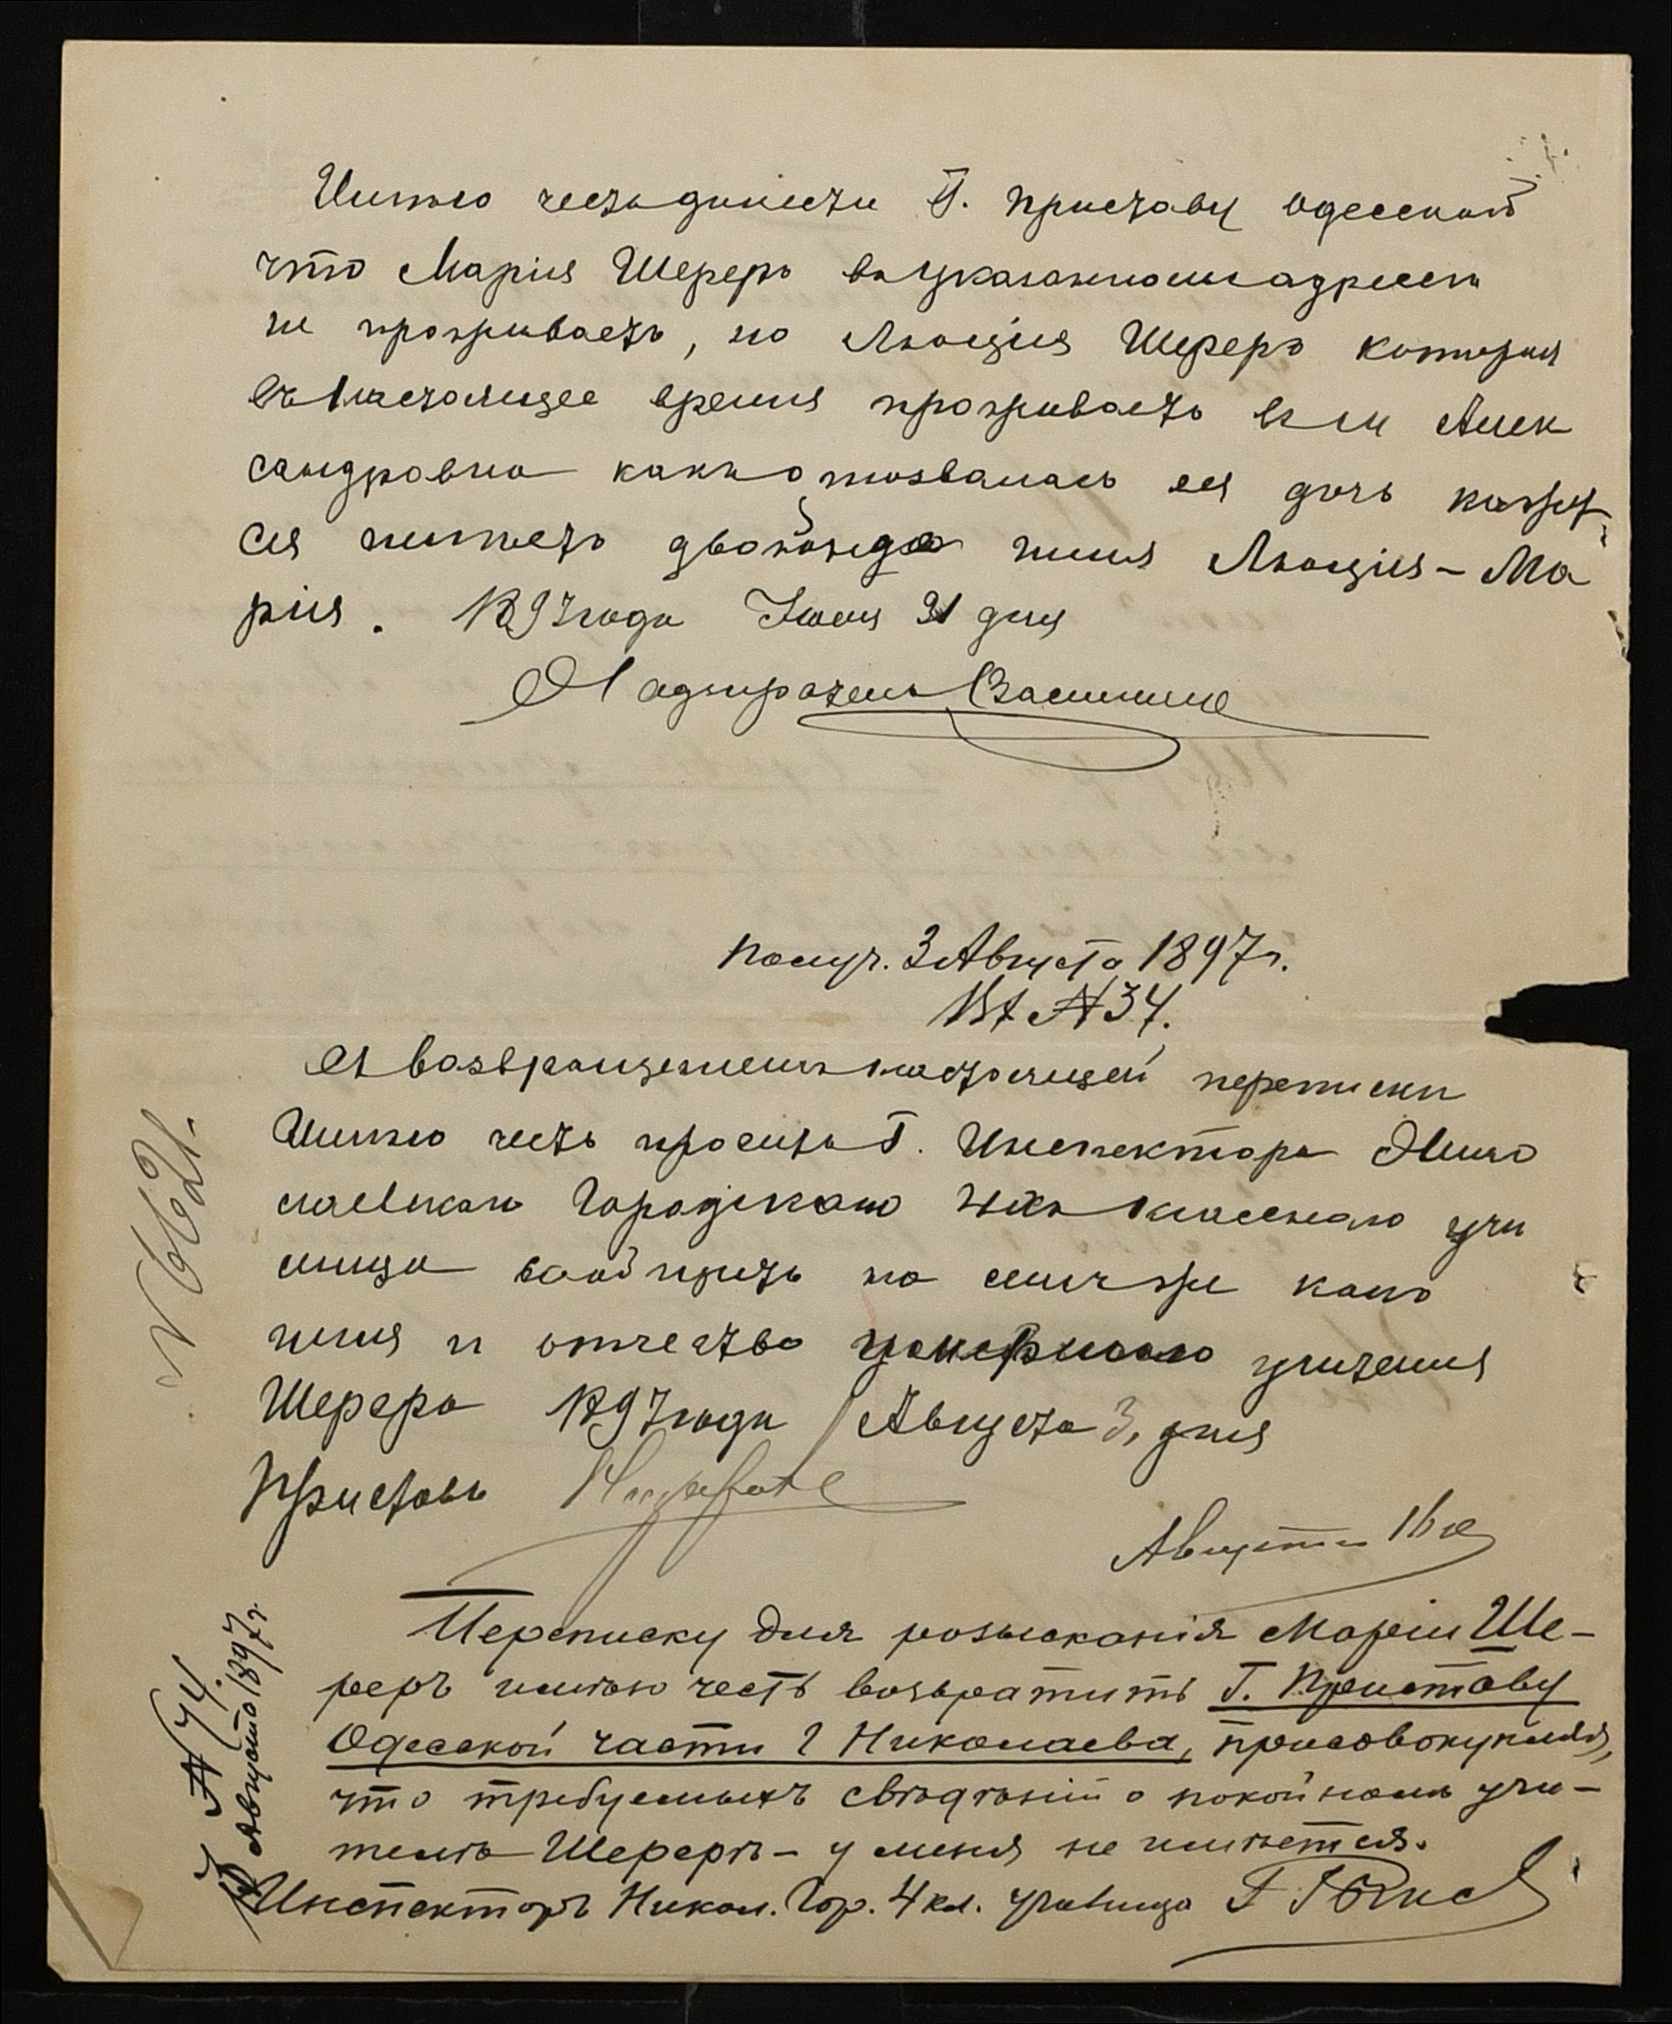 Имѣю честь донести Г. Приставу Одесской
что Марія Шереръ въ указанномъ адресѣ
не проживаетъ, но Люція Шереръ которая
въ настоящее время проживаетъ Алек
сандровна какъ отозвалась ея дочь кажет
ся имѣетъ двойное имя Люція-Ма
рія. 1897 года Июля 31 дня
Надзиратель
Получ. 3 Августа 1897 г.
Вх № 34.
Съ возвращеніемъ настоящей переписки
Имѣю честь просить Г. Инспектора Нико
лаевскаго Городскаго 4хъ класснаго учи
лища сообщить на семъ же како
имя и отчество умершаго учителя
Шерера 1897 года Августа 3, дня
Приставъ
N 6621.
Августа 16 го
Переписку для розысканія Маріи Ше-
реръ имѣю честь возвратить Г. Приставу
Одесской части г Николаева, присовокупляя,
что требуемыхъ свѣдѣній о покойномъ учи-
телѣ Шерерѣ - у меня не имѣется.
Инспекторъ Никол. Гор. 4 кл. училища
№ 74.
Августа 1897 г.